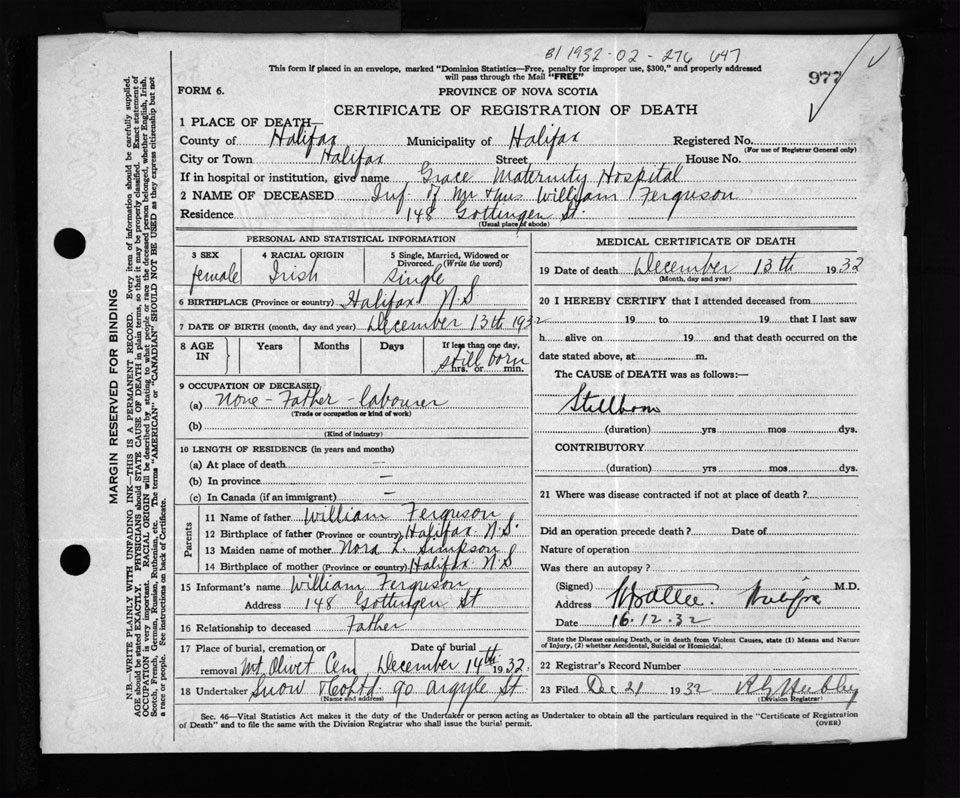 B1 1932-02-276 647
This form if placed in an envelope, marked "Dominion Statistics—Free, penalty for improper use, $300," and properly addressed
will pass through the Mail "FREE"
977
FORM 6.
PROVINCE OF NOVA SCOTIA
CERTIFICATE OF REGISTRATION OF DEATH
1 PLACE OF DEATH—
County of Halifax Municipality of Halifax Registered No.
(For use of Registrar General only)
City or Town Halifax Street House No.
If in hospital or institution, give name Grace Maternity Hospital
2 NAME OF DECEASED Inf. of Mr & Mrs. William Ferguson
Residence 148 Gottingen St.
(Usual place of abode)
PERSONAL AND STATISTICAL INFORMATION
3 SEX 4 RACIAL ORIGIN 5 Single, Married, Widowed or
Divorced. (Write the word)
female Irish single
6 BIRTHPLACE (Province or country) Halifax N.S
7 DATE OF BIRTH (month, day and year) December 13th 1932
8 AGE IN Years Months Days If less than one day,
still born
hrs. or min.
9 OCCUPATION OF DECEASED
(a) None - Father - labourer
(Trade or occupation or kind of work)
(b)
(Kind of industry)
10 LENGTH OF RESIDENCE (in years and months)
(a) At place of death —
(b) In province —
(c) In Canada (if an immigrant) —
Parents
11 Name of father William Ferguson
12 Birthplace of father (Province or country) Halifax N.S.
13 Maiden name of mother Nora L. Simpson
14 Birthplace of mother (Province or country) Halifax N.S
15 Informant's name William Ferguson
Address 148 Gottingen St
16 Relationship to deceased Father
17 Place of burial, cremation or Date of burial
removal Mt Olivet Cem December 14th 1932.
18 Undertaker Snow & Co Ltd. 90 Argyle St.
(Name and address)
MEDICAL CERTIFICATE OF DEATH
19 Date of death December 13th 1932
(Month, day and year)
20 I HEREBY CERTIFY that I attended deceased from
19 to 19 that I last saw
h alive on 19 and that death occurred on the
date stated above, at m.
The CAUSE of DEATH was as follows:—
Stillborn
(duration) yrs mos dys.
CONTRIBUTORY
(duration) yrs mos dys.
21 Where was disease contracted if not at place of death?
Did an operation precede death? Date of
Nature of operation
Was there an autopsy?
(Signed) M.D.
Address Halifax
Date 16.12.32
State the Disease causing Death, or in death from Violent Causes, state (1) Means and Nature
of Injury, (2) whether Accidental, Suicidal or Homicidal.
22 Registrar's Record Number
23 Filed Dec 21 1932
(Division Registrar)
Sec. 46—Vital Statistics Act makes it the duty of the Undertaker or person acting as Undertaker to obtain all the particulars required in the "Certificate of Registration
of Death" and to file the same with the Division Registrar who shall issue the burial permit.
(OVER)
MARGIN RESERVED FOR BINDING
N.B.—WRITE PLAINLY WITH UNFADING INK—THIS IS A PERMANENT RECORD. Every item of information should be carefully supplied.
AGE should be stated EXACTLY. PHYSICIANS should STATE CAUSE OF DEATH in plain terms, so that it may be properly classified. Exact statement of
OCCUPATION is very important. RACIAL ORIGIN will be described by stating to what people or race the deceased person belonged, whether English, Irish,
Scotch, French, German, Russian, Ruthenian, etc. The terms "AMERICAN" or "CANADIAN" SHOULD NOT BE USED as they express citizenship but not
a race or people. See instructions on back of Certificate.